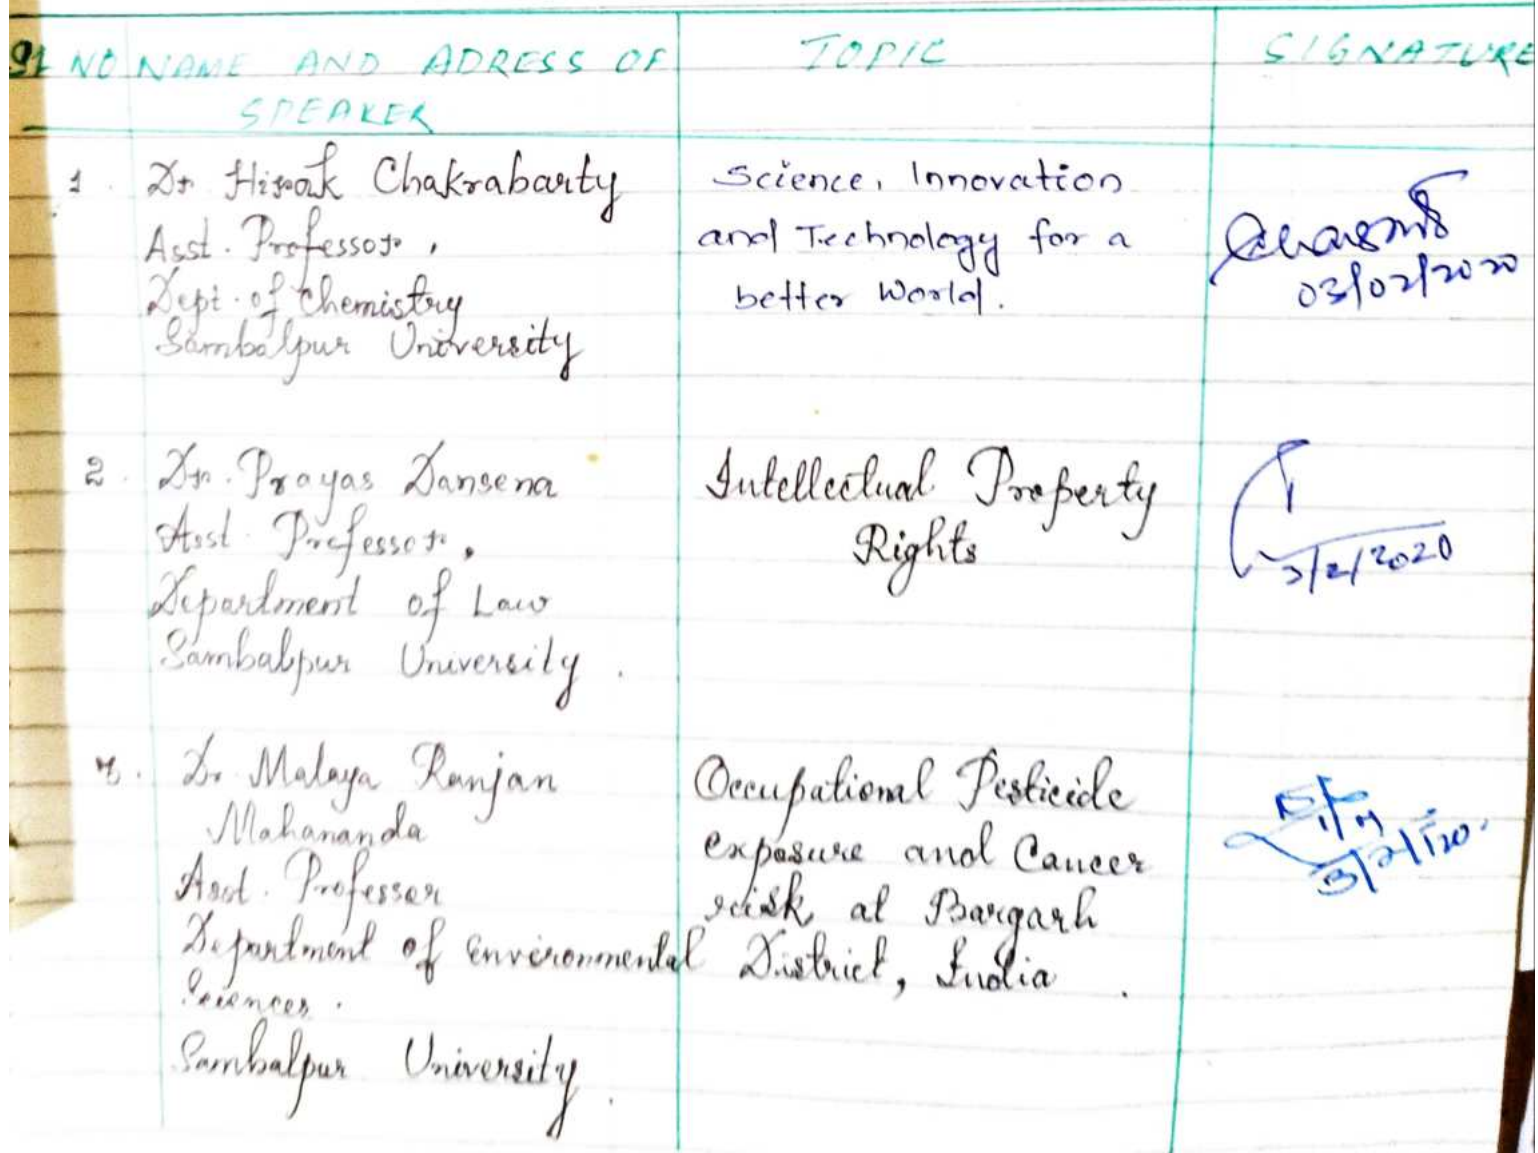 Sl NO NAME AND ADRESS OF SPEAKER TOPIC SIGNATURE
1. Dr Hirak Chakrabarty
Asst. Professor,
Dept. of Chemistry
Sambalpur University
Science, Innovation
and Technology for a
better World.
03/02/2020
2. Dr. Prayas Dansena
Asst. Professor,
Department of Law
Sambalpur University.
Intellectual Property
Rights
3/2/2020
3. Dr Malaya Ranjan
Mahananda
Asst. Professor
Department of Environmental
Sciences.
Sambalpur University.
Occupational Pesticide
exposure and Cancer
risk at Bargarh
District, India.
3/2/120.